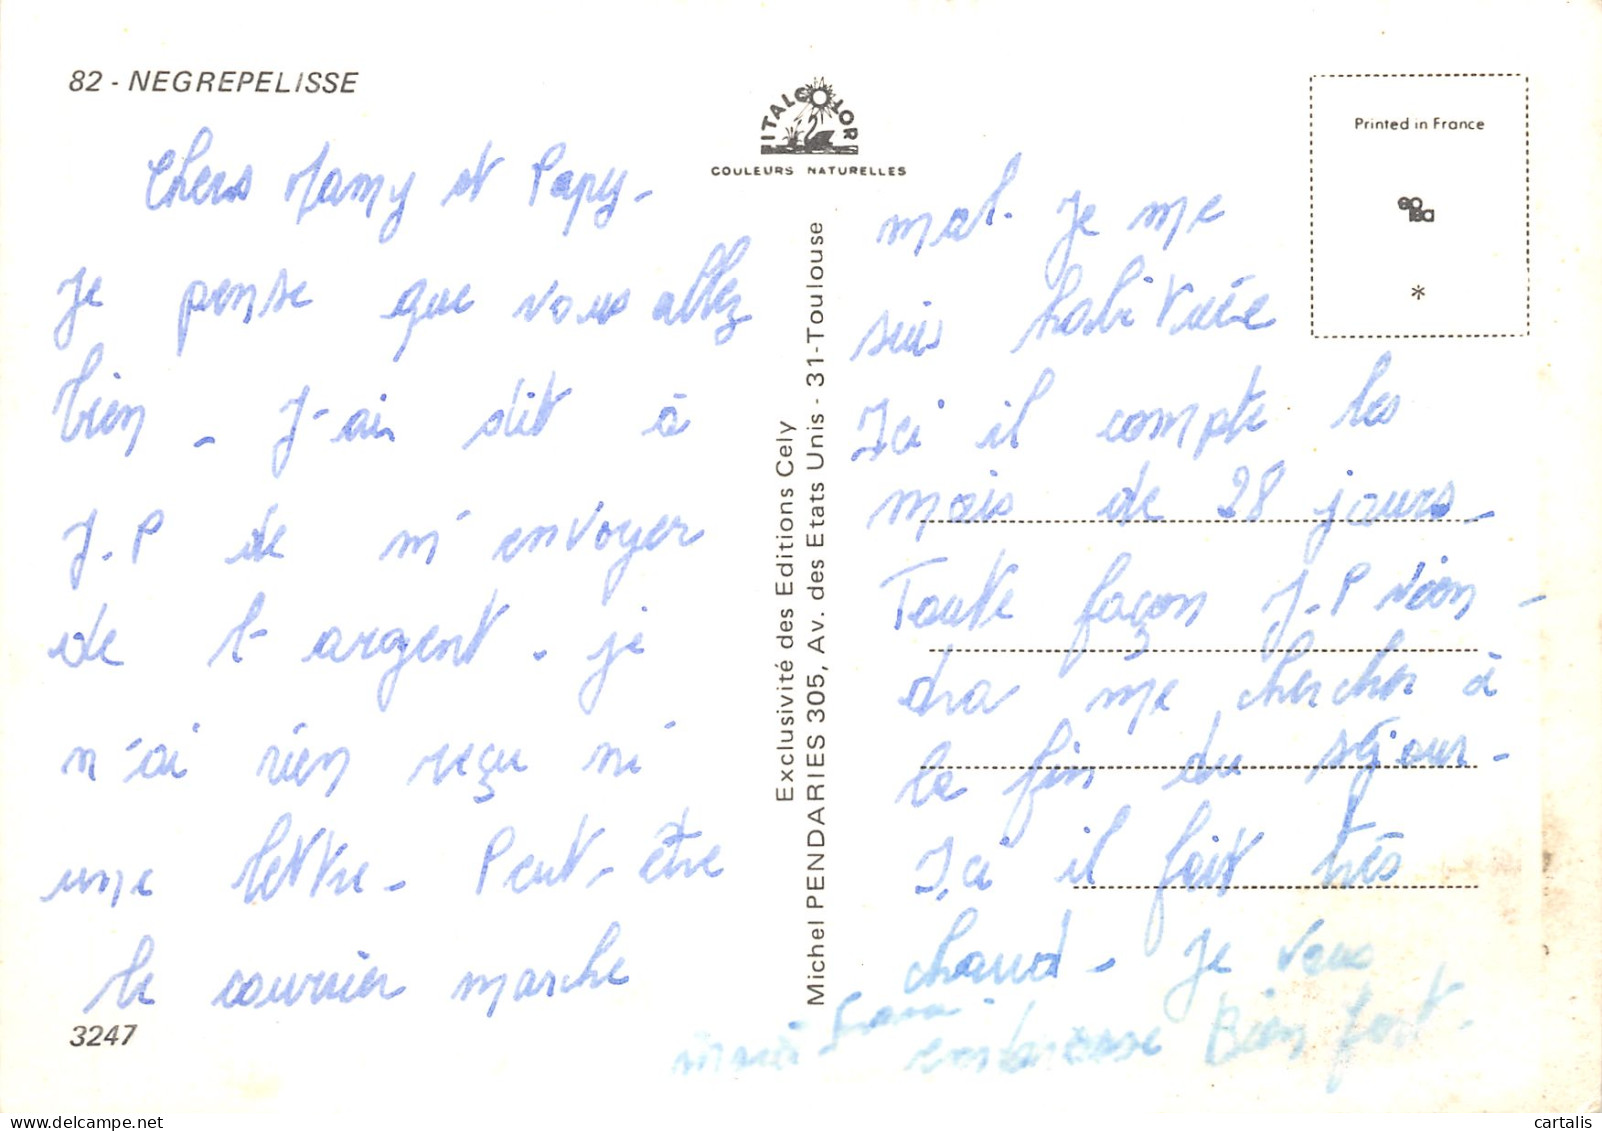 82 - NEGREPELISSE
Chers Mamy et Papy -
Je pense que vous allez
bien - J'ai dit à
J-P de m'envoyer
de l'argent - je
n'ai rien reçu ni
une lettre - Peut-être
le courrier marche
3247
ITALCOLOR
COULEURS NATURELLES
Exclusivité des Editions Cely
Michel PENDARIES 305, Av. des Etats Unis - 31-Toulouse
Printed in France
*
mal. Je me
suis habituée
Ici il compte les
mois de 28 jours -
Toute façon J-P vien -
dra me chercher à
la fin du séjour -
Ici il fait très
chaud - Je vous
embrasse Bien fort -
cartalis on www.delcampe.net